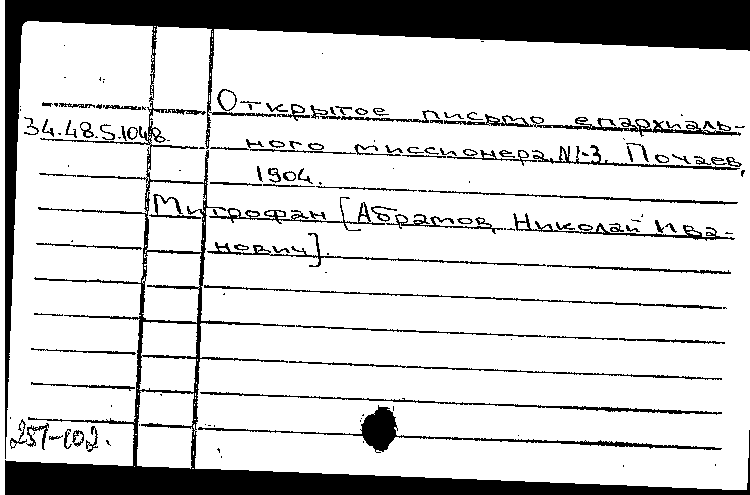 Открытое письмо епархиаль-
34.48.5.1048.
ного миссионера, №1-3. Почаев,
1904.
Митрофан [Абрамов, Николай Ива-
нович].
257-002.